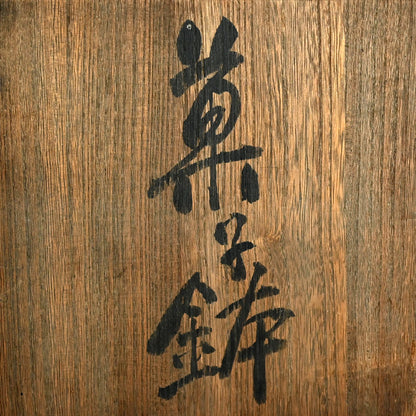 菓子鉢